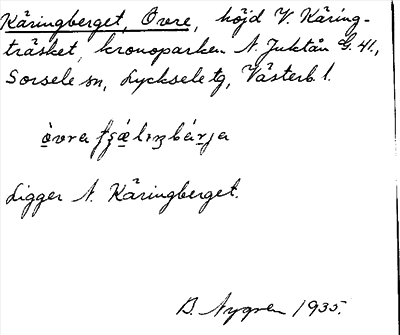 Käringberget, Övre, höjd V. Käring-
träsket, kronoparken N. Juktån G. 41.,
Sorsele sn, Lycksele tg, Västerb l.
ò̱vra
Ligger N. Käringberget.
B. Nygren 1935.